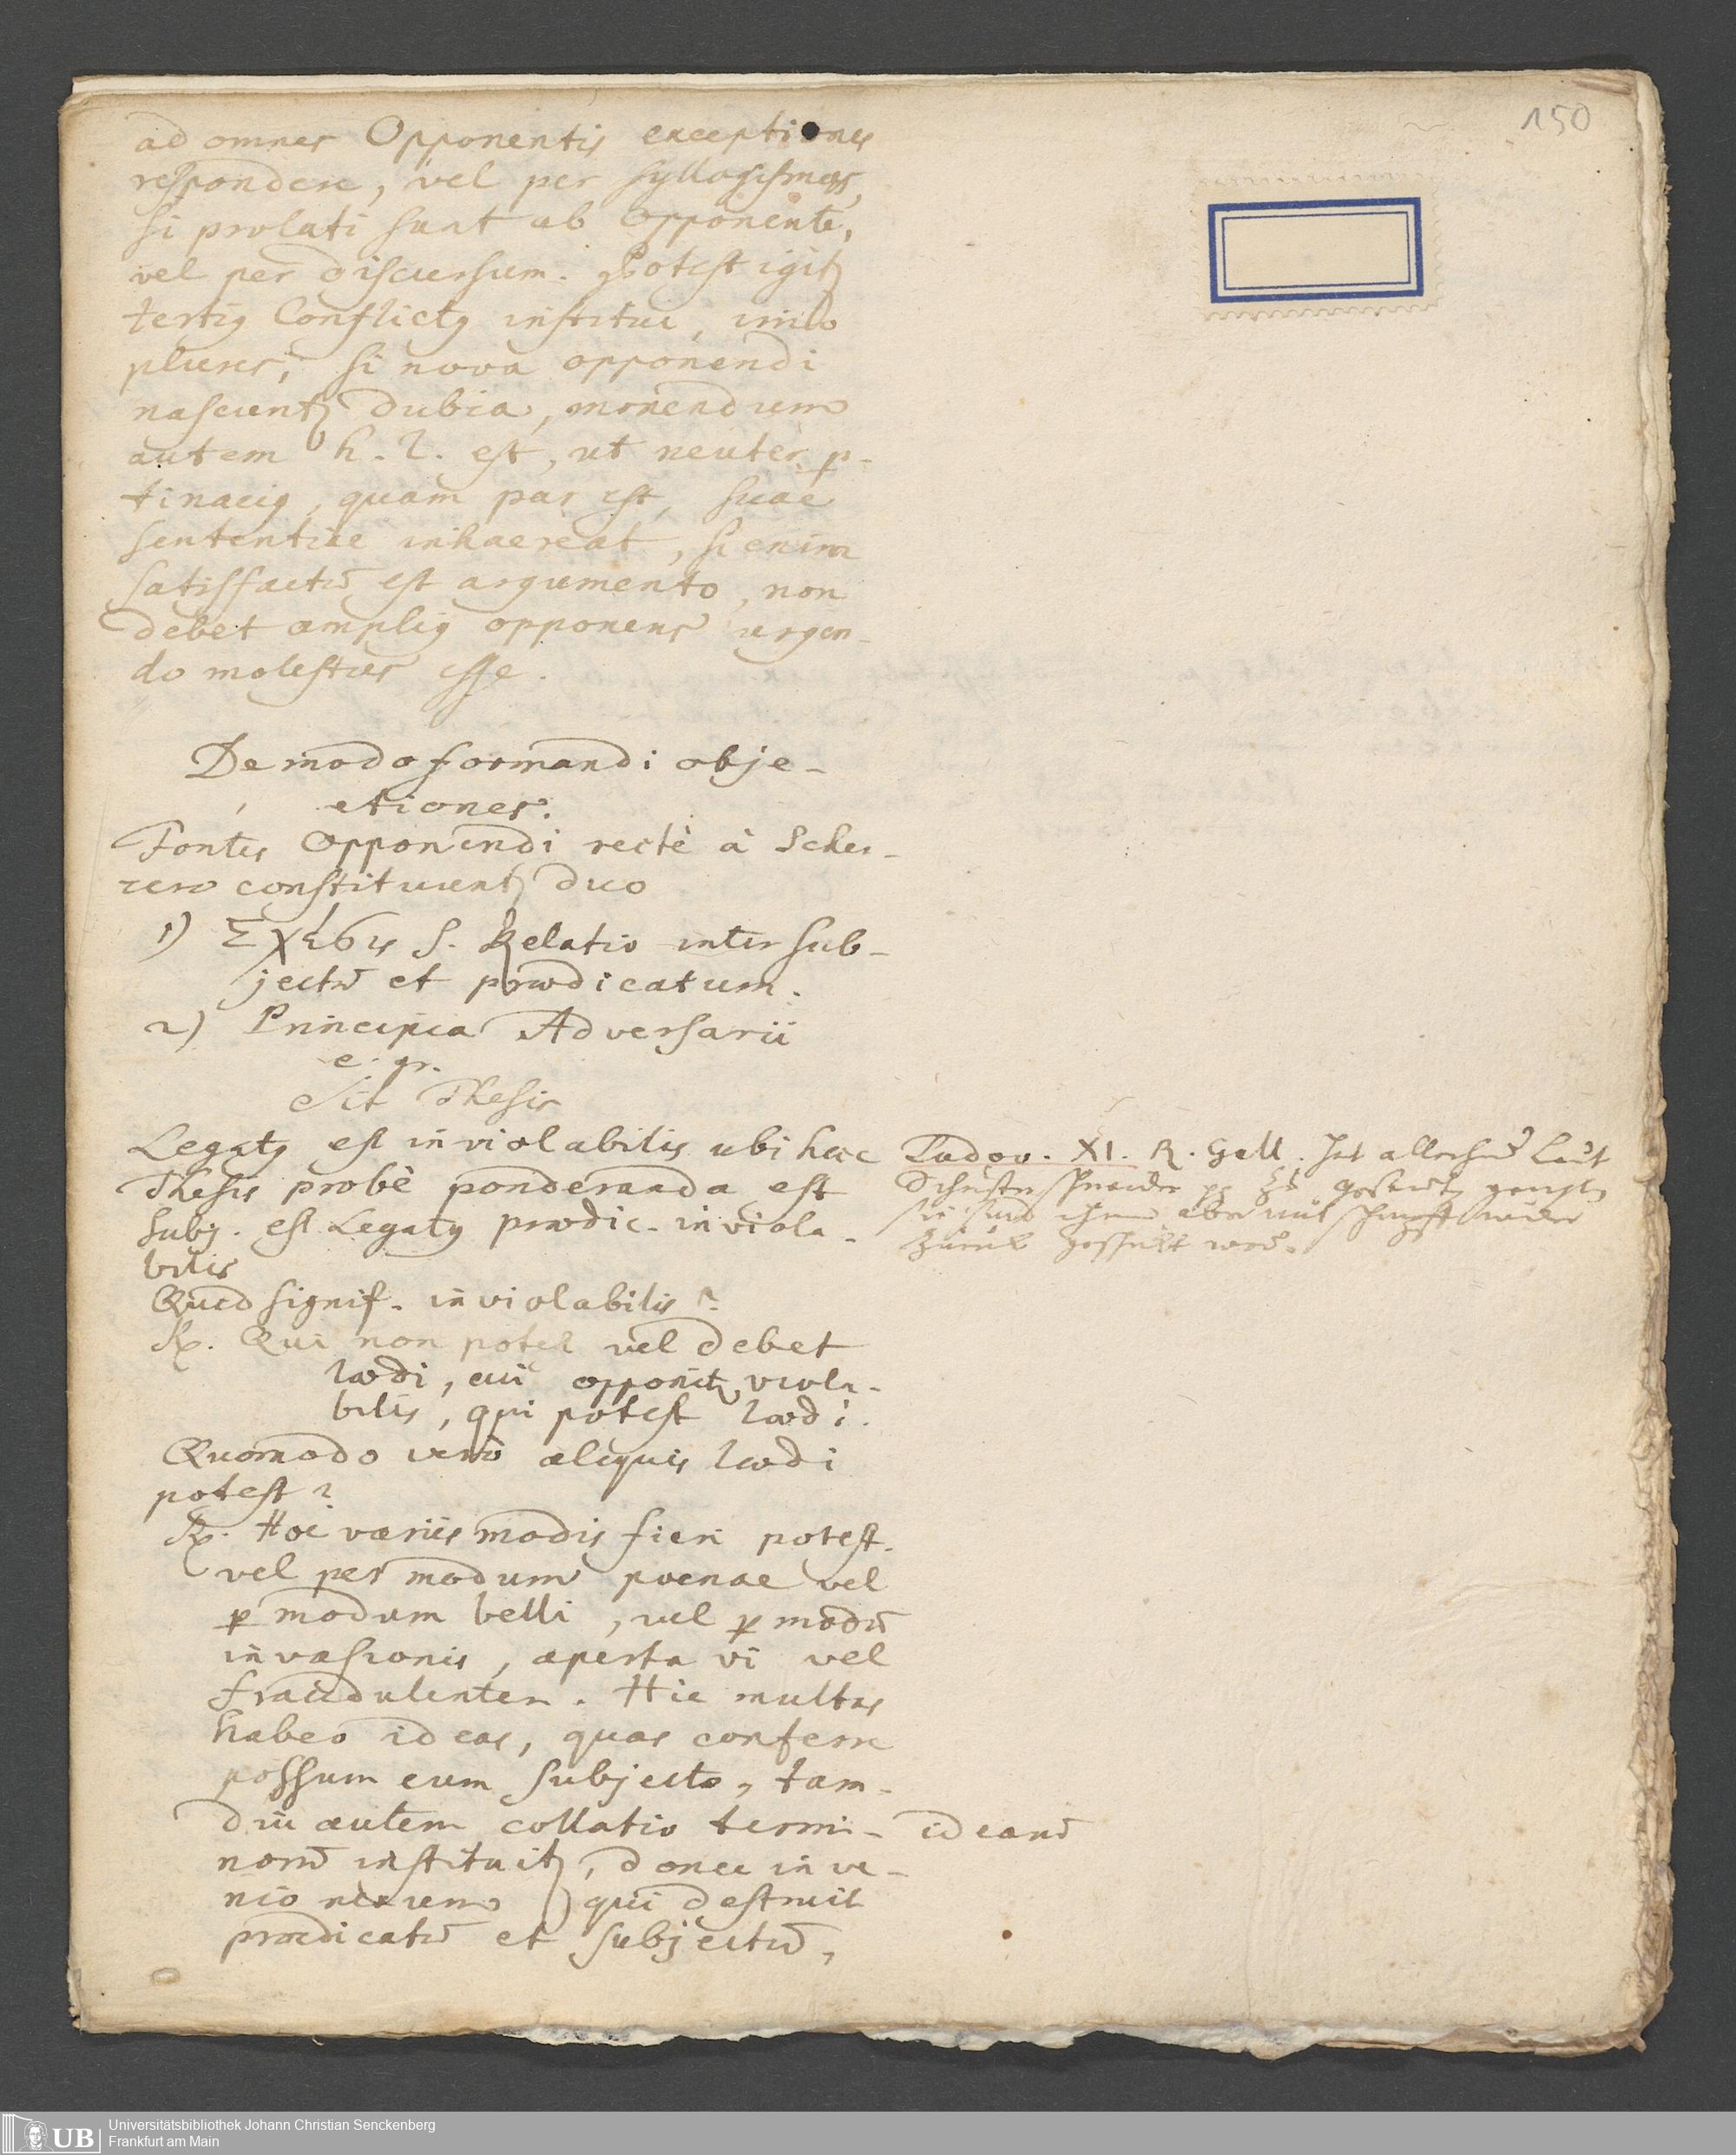 150
ad omnes Opponentis exceptiones
respondere, vel per syllogismos,
si prolati sunt ab Opponente,
vel per discursum. Potest igitꝫ
tertiꝰ Conflictꝰ institui, imo
plures, si nova opponendi
nascuntꝫ dubia, monendum
autem h. l. est, ut neuter p-
tinaciꝰ, quam par est, suae
sententiae inhaereat, si enim
satisfactū est argumento, non
debet ampliꝰ opponens urgen-
do molestus esse.
De modo formandi obje-
ctiones.
Fontes Opponendi rectè à Scher-
zero constituuntꝫ duo
1) Σχέσις s. Relatio inter sub-
jectū et prædicatum.
2) Principia Adversarii
e. gr.
Sit Thesis
Legatꝰ est inviolabilis ubi haec
Thesis probè ponderanda est
Subj. est Legatꝰ prædic. inviola-
bilis
Quid signif. inviolabilis?
℞. Qui non potest vel debet
lædi, cui opponitꝫ viola-
bilis, qui potest lædi.
Quomodo verò aliquis lædi
potest?
℞. Hoc variis modis fieri potest.
vel per modum poenae vel
ꝑ modum belli, vel ꝑ modū
invasionis, aperta vi vel
fraudulenter. Hic multas
habeo ideas, quas conferre
possum cum subjecto, tam-
diu autem collatio termi-
norū instituitꝫ, donec inve-
nio nexum qui destruit
prædicatū et subjectū,
Ludov. XI. R. Gall. hat allerhand
zurück geschickt
idearū
UB
Universitätsbibliothek Johann Christian Senckenberg
Frankfurt am Main